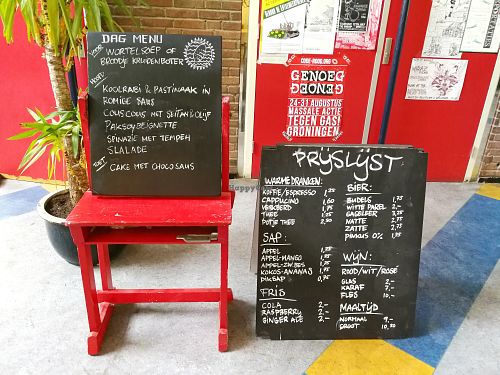 DAG MENU
VOOR: WORTELSOEP OF
BROODJE KRUIDENBOTER
HOOFD:
KOOLRABI & PASTINAAK IN
ROMIGE SAUS
COUSCOUS MET SEITAN & OLIJF
PAKSOY BEIGNETTE
SPINAZIE MET TEMPEH
SLALADE
TOET: CAKE MET CHOCOSAUS
CODE-ROOD.ORG
GENOEG
GENOEG
24-31 AUGUSTUS
MASSALE ACTIE
TEGEN GAS!
GRONINGEN
PRYSLYST
WARME DRANKEN:
KOFFIE/ESPRESSO 1,35
CAPPUCCINO 1,60
VERKEERD 1,95
THEE 1,25
POTJE THEE 2,50
SAP:
APPEL 1,35
APPEL-MANGO 1,95
APPEL-ZW.BES 1,95
KOKOS-ANANAS 1,95
DIKSAP 0,95
FRIS
COLA 2,-
RASPBERRY 2,-
GINGER ALE 2,-
BIER:
BUDELS 1,75
WITTE PAREL 2,-
GAGELEER 3,25
NATTE 2,75
ZATTE 2,75
PINKUS 0% 1,95
WIJN:
ROOD/WIT/ROSE
GLAS 2,-
KARAF 7,-
FLES 10,-
MAALTIJD
NORMAAL 9,-
GROOT 10,50